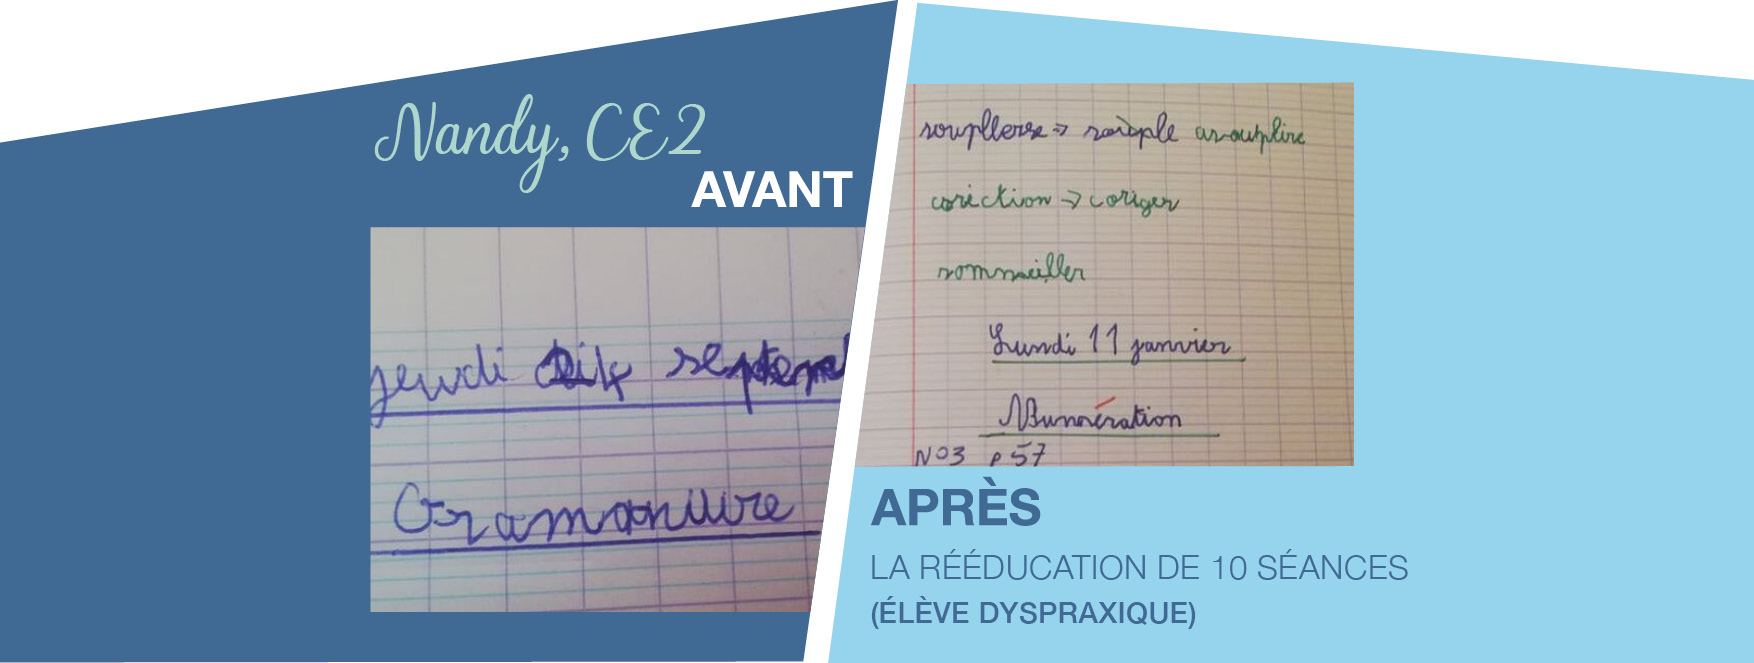 Nandy, CE2
AVANT
jeudi dix
souplesse → souple assouplire
coriction → coriger
sommeiller
Lundi 11 janvier
Numération
N°3 p 57
APRÈS
LA RÉÉDUCATION DE 10 SÉANCES
(ÉLÈVE DYSPRAXIQUE)